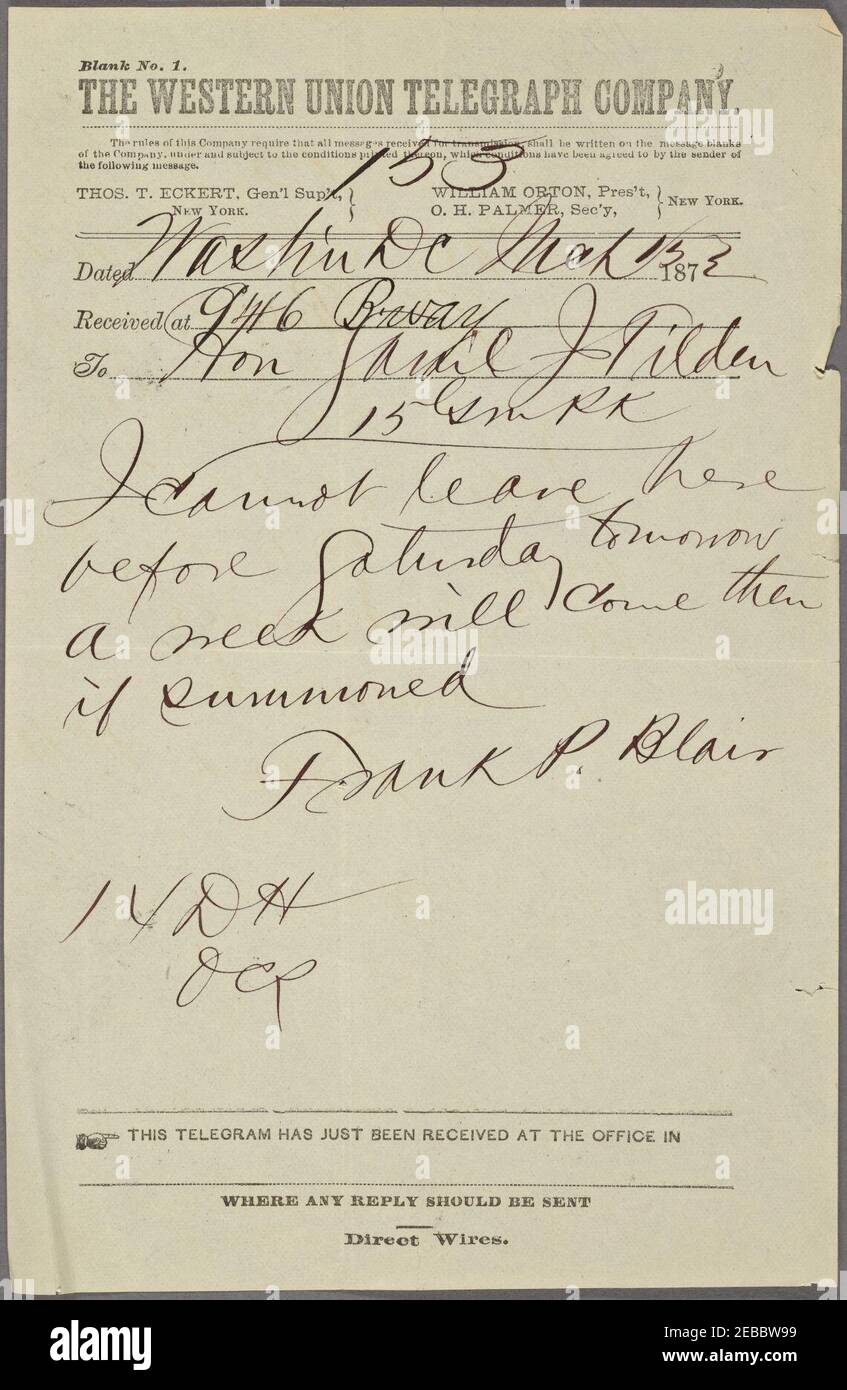 Blank No. 1.
THE WESTERN UNION TELEGRAPH COMPANY.
The rules of this Company require that all messages received for transmission, shall be written on the message blanks
of the Company, under and subject to the conditions printed thereon, which conditions have been agreed to by the sender of
the following message.
153
THOS. T. ECKERT, Gen'l Sup't, NEW YORK.
WILLIAM ORTON, Pres't,
O. H. PALMER, Sec'y, NEW YORK.
Dated Washn DC Mch 15 1873
Received at 946 Bway
To Hon Saml J Tilden
15
I cannot leave here
before Saturday tomorrow
a week will come then
if summoned
Frank P. Blair
14 DH
THIS TELEGRAM HAS JUST BEEN RECEIVED AT THE OFFICE IN
WHERE ANY REPLY SHOULD BE SENT
Direct Wires.
alamy
a
alamy
Image ID: 2EBBW99
www.alamy.com